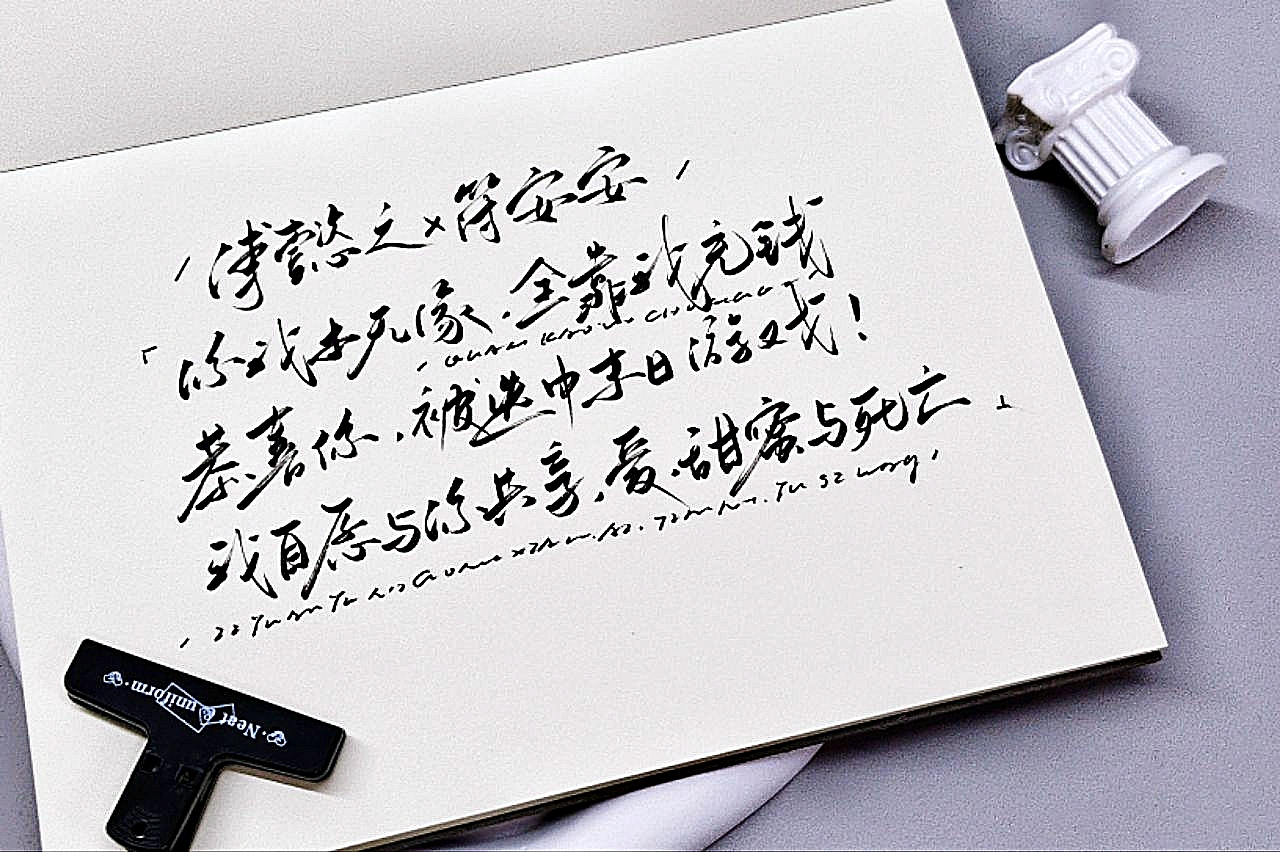 傅懿之×符安安
「你我本无缘,全靠我充钱
恭喜你,被选中末日游戏!
我自愿与你共享,爱.甜蜜与死亡」
Neat & uniform